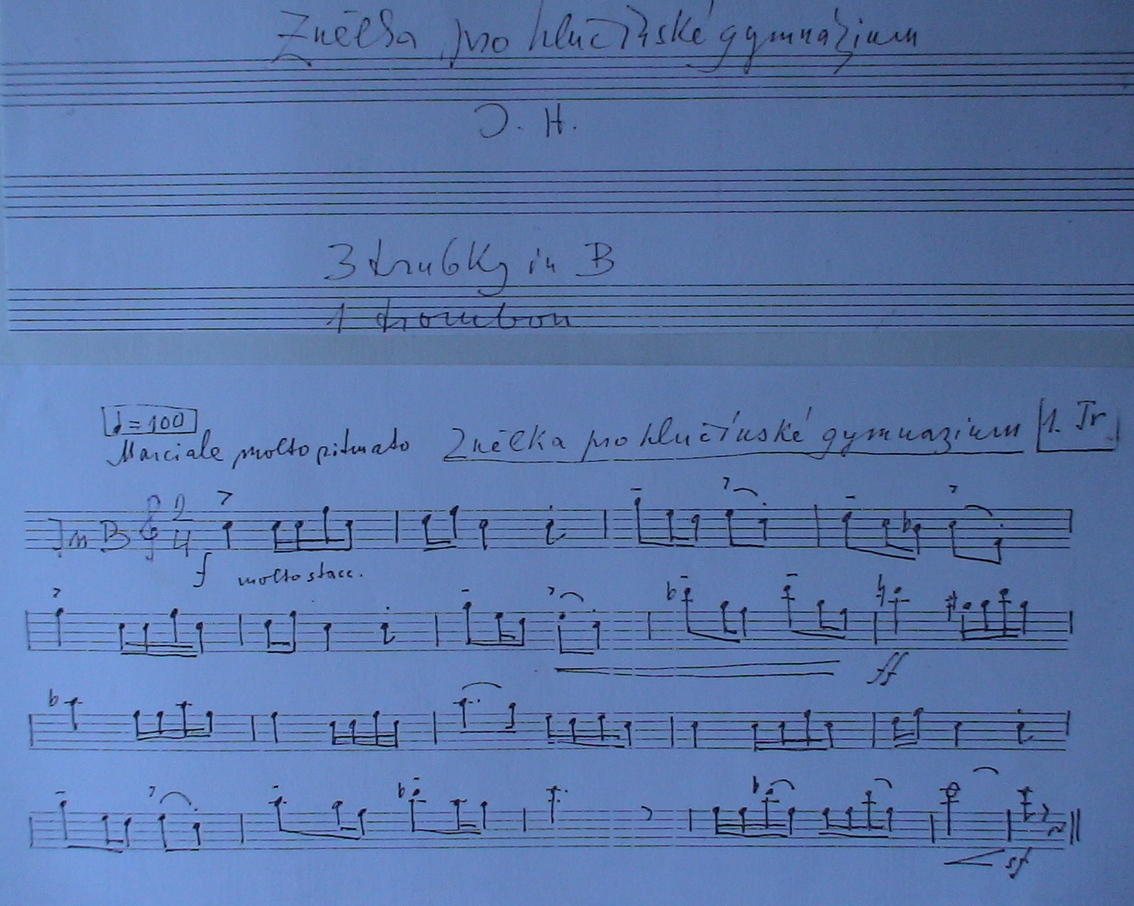 Znělka pro hlučínské gymnázium
J. H.
3 trubky in B
1 trombon
♩=100
Marciale molto ritmato Znělka pro hlučínské gymnazium 1. Tr.
In B 2/4
f molto stacc.
ff
sf